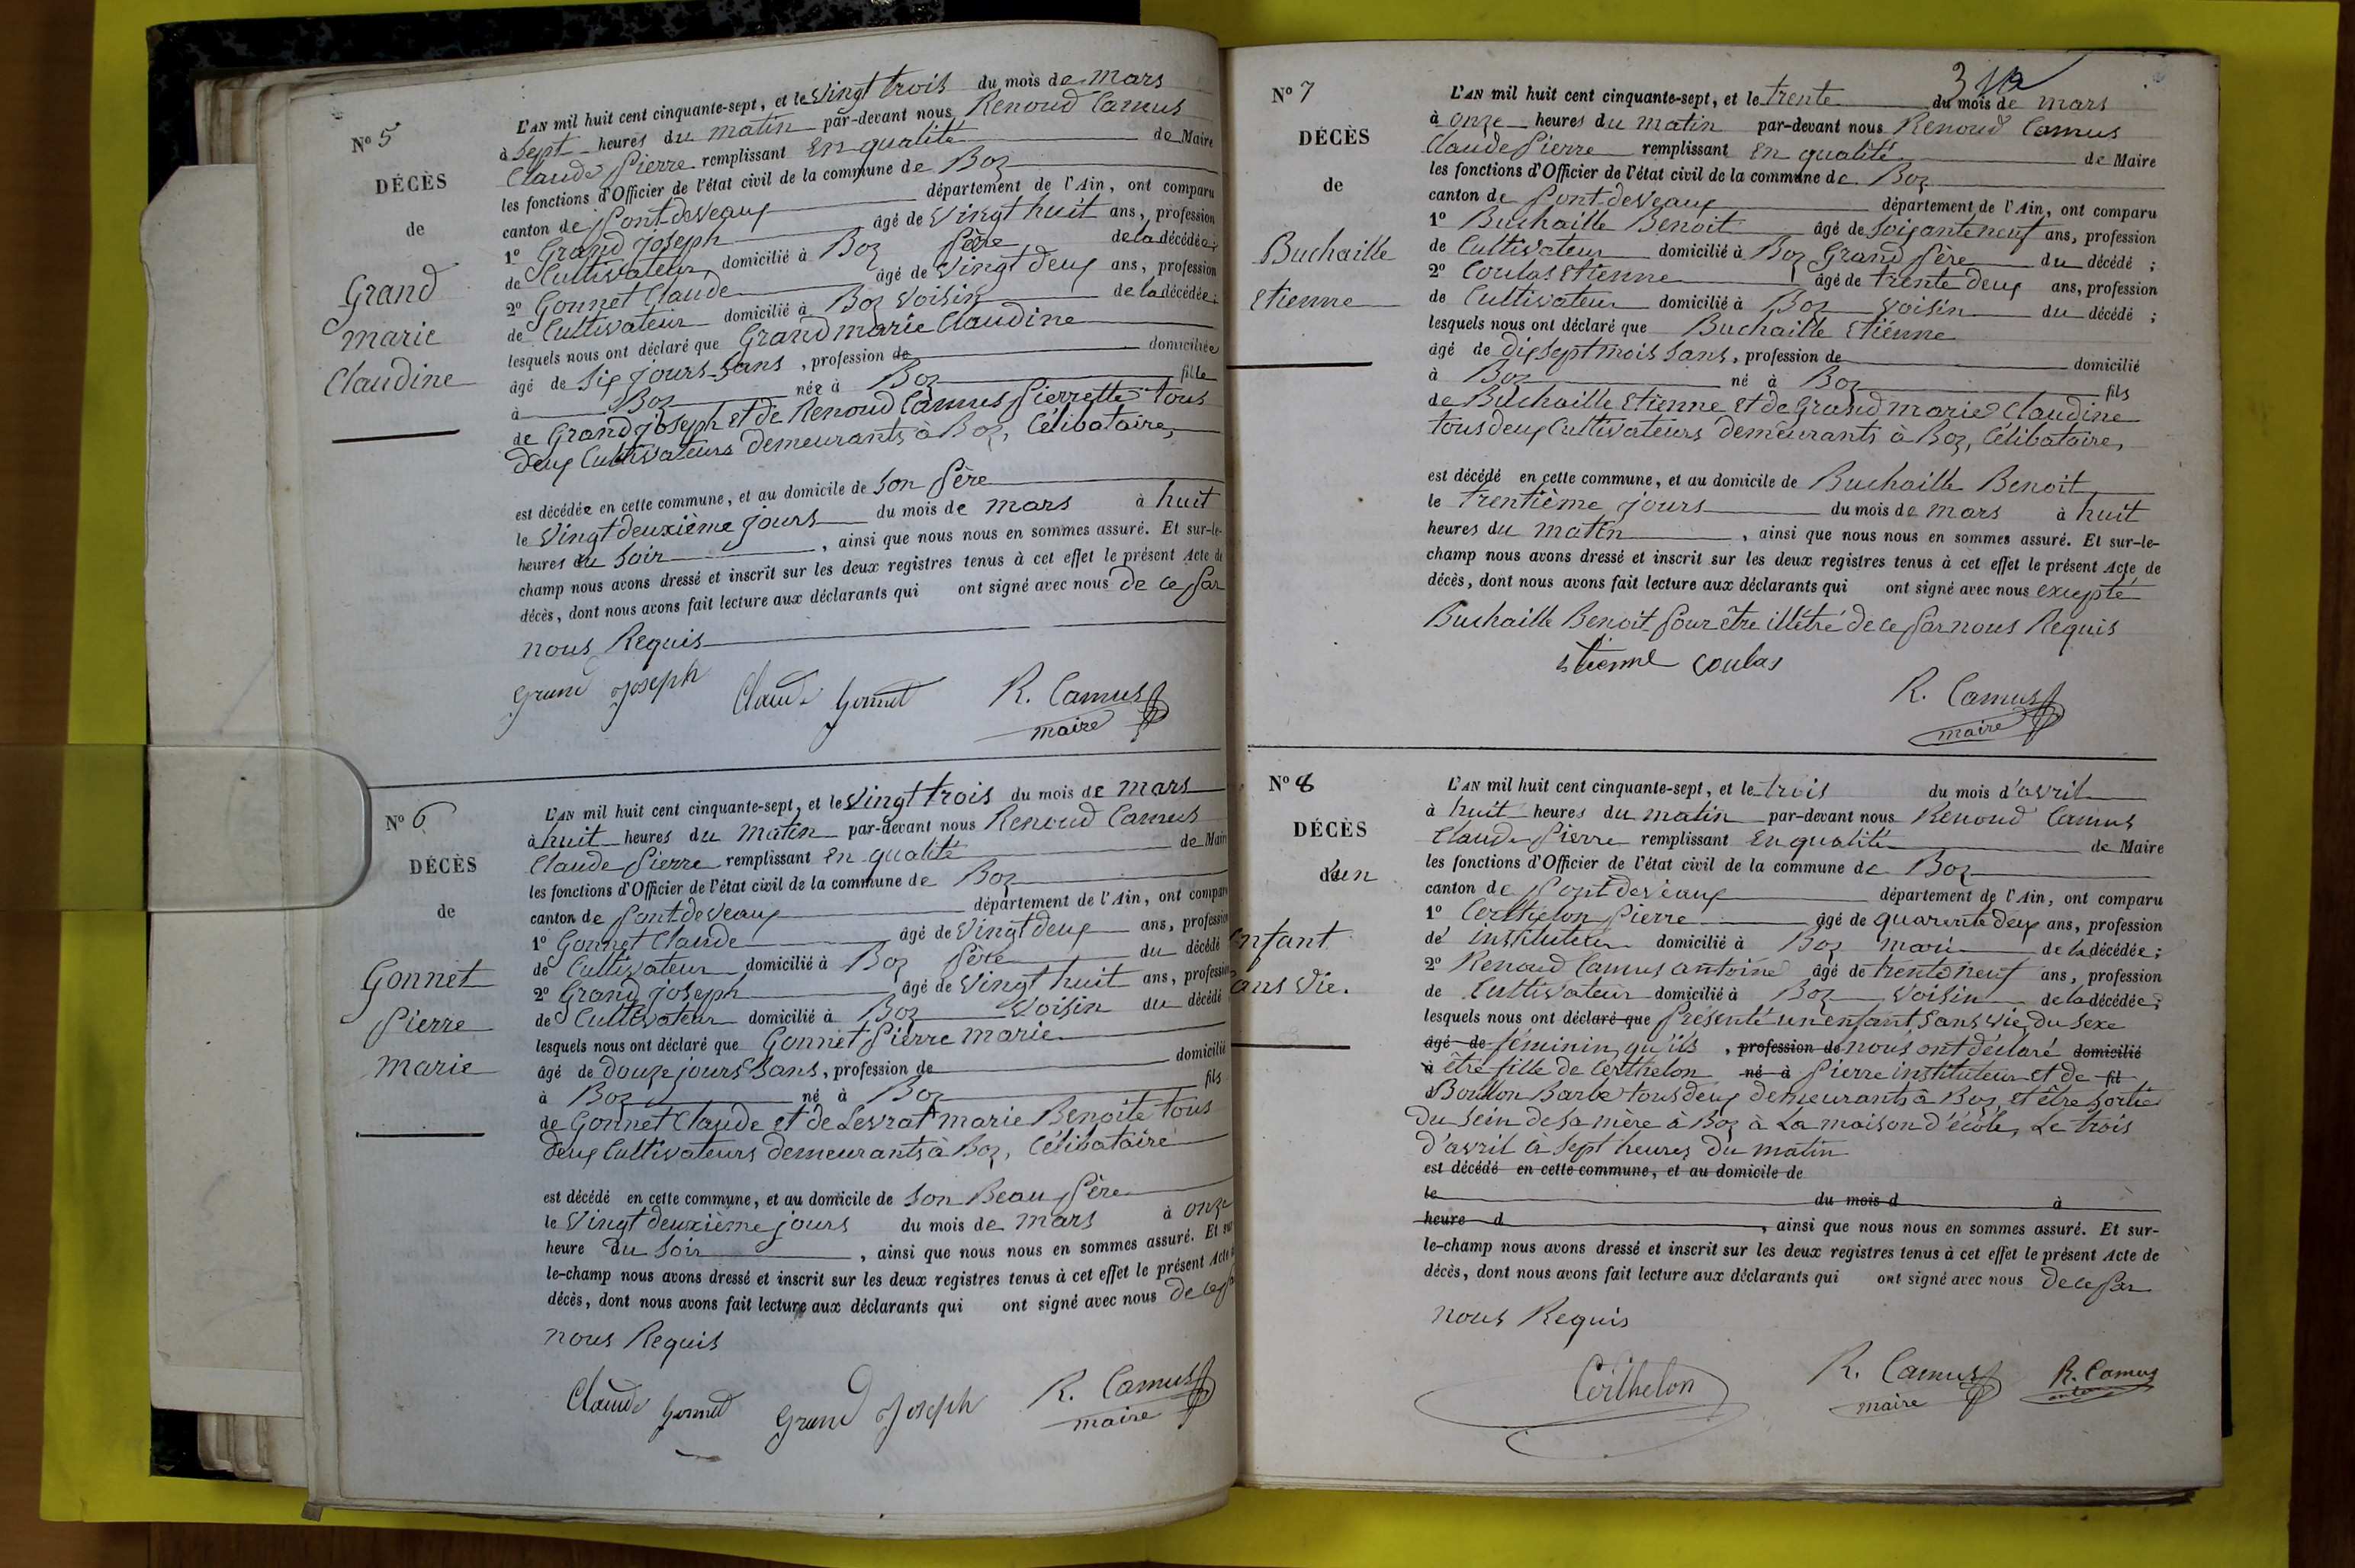 N° 5
DÉCÈS
de
Grand
marie
Claudine
L'AN mil huit cent cinquante-sept, et le Vingt trois du mois de mars
à Sept heures du matin par-devant nous Renoud Camus
Claude Pierre remplissant En qualité de Maire
les fonctions d'Officier de l'état civil de la commune de Boz
canton de Pontdeveaux département de l'Ain, ont comparu
1° Grand Joseph âgé de Vingt huit ans, profession
de Cultivateur domicilié à Boz Père de la décédée;
2° Gonnet Claude âgé de Vingt deux ans, profession
de Cultivateur domicilié à Boz Voisin de la décédée;
lesquels nous ont déclaré que Grand marie Claudine
âgé de Six jours Sans, profession de domiciliée
à Boz née à Boz fille
de Grand joseph et de Renoud Camus Pierrette tous
deux Cultivateurs demeurants à Boz, Célibataire,
est décédée en cette commune, et au domicile de Son Père
le Vingt deuxième jours du mois de mars à huit
heures du Soir, ainsi que nous nous en sommes assuré. Et sur-le-
champ nous avons dressé et inscrit sur les deux registres tenus à cet effet le présent Acte de
décès, dont nous avons fait lecture aux déclarants qui ont signé avec nous de ce Par
nous Requis
Grand Joseph Claude Gonnet R. Camus
maire
N° 6
DÉCÈS
de
Gonnet
Pierre
marie
L'AN mil huit cent cinquante-sept, et le Vingt trois du mois de mars
à huit heures du matin par-devant nous Renoud Camus
Claude Pierre remplissant En qualité de Mair
les fonctions d'Officier de l'état civil de la commune de Boz
canton de Pontdeveaux département de l'Ain, ont comparu
1° Gonnet Claude âgé de Vingt deux ans, profession
de Cultivateur domicilié à Boz Père du décédé
2° Grand joseph âgé de Vingt huit ans, profession
de Cultivateur domicilié à Boz Voisin du décédé
lesquels nous ont déclaré que Gonnet Pierre marie
âgé de douze jours Sans, profession de domicilié
à Boz né à Boz fils
de Gonnet Claude et de Levrat marie Benoite tous
deux Cultivateurs demeurants à Boz, Célibataire
est décédé en cette commune, et au domicile de Son Beau Père
le Vingt deuxième jours du mois de mars à onze
heure du Soir, ainsi que nous nous en sommes assuré. Et sur
le-champ nous avons dressé et inscrit sur les deux registres tenus à cet effet le présent Acte
décès, dont nous avons fait lecture aux déclarants qui ont signé avec nous de ce
nous Requis
Claude Gonnet Grand Joseph R. Camus
maire
3
N° 7
DÉCÈS
de
Buchaille
Etienne
L'AN mil huit cent cinquante-sept, et le trente du mois de mars
à onze heures du matin par-devant nous Renoud Camus
Claude Pierre remplissant En qualité de Maire
les fonctions d'Officier de l'état civil de la commune de Boz
canton de Pont-deveaux département de l'Ain, ont comparu
1° Buchaille Benoit âgé de Soixante neuf ans, profession
de Cultivateur domicilié à Boz Grand Père du décédé;
2° Coulas Etienne âgé de trente deux ans, profession
de Cultivateur domicilié à Boz Voisin du décédé;
lesquels nous ont déclaré que Buchaille Etienne
âgé de dix sept mois Sans, profession de domicilié
à Boz né à Boz fils
de Buchaille Etienne et de Grand marie Claudine
tous deux Cultivateurs demeurants à Boz, Célibataire,
est décédé en cette commune, et au domicile de Buchaille Benoit
le trentième jours du mois de mars à huit
heures du matin, ainsi que nous nous en sommes assuré. Et sur-le-
champ nous avons dressé et inscrit sur les deux registres tenus à cet effet le présent Acte de
décès, dont nous avons fait lecture aux déclarants qui ont signé avec nous excepté
Buchaille Benoit Pour être illétré de ce Par nous Requis
Etienne Coulas
R. Camus
maire
N° 8
DÉCÈS
d'un
Enfant
Sans Vie.
L'AN mil huit cent cinquante-sept, et le trois du mois d'avril
à huit heures du matin par-devant nous Renoud Camus
Claude Pierre remplissant En qualité de Maire
les fonctions d'Officier de l'état civil de la commune de Boz
canton de Pontdeveaux département de l'Ain, ont comparu
1° Certhelon Pierre âgé de quarante deux ans, profession
de instituteur domicilié à Boz mari de la décédée;
2° Renoud Camus antoine âgé de trente neuf ans, profession
de Cultivateur domicilié à Boz Voisin de la décédée;
lesquels nous ont déclaré que Présenté un enfant Sans vie, du Sexe
âgé de féminin, qu'ils, profession de nous ont déclaré domicilié
à être fille de Certhelon né à Pierre instituteur et de fil
d Boullon Barbe tous deux demeurants à Boz, et être Sortie
du Sein de Sa mère à Boz à La maison d'école, Le trois
d'avril à Sept heures du matin
est décédé en cette commune, et au domicile de
le du mois d à
heure d, ainsi que nous nous en sommes assuré. Et sur-
le-champ nous avons dressé et inscrit sur les deux registres tenus à cet effet le présent Acte de
décès, dont nous avons fait lecture aux déclarants qui ont signé avec nous de ce Par
nous Requis
Certhelon R. Camus R. Camus
maire